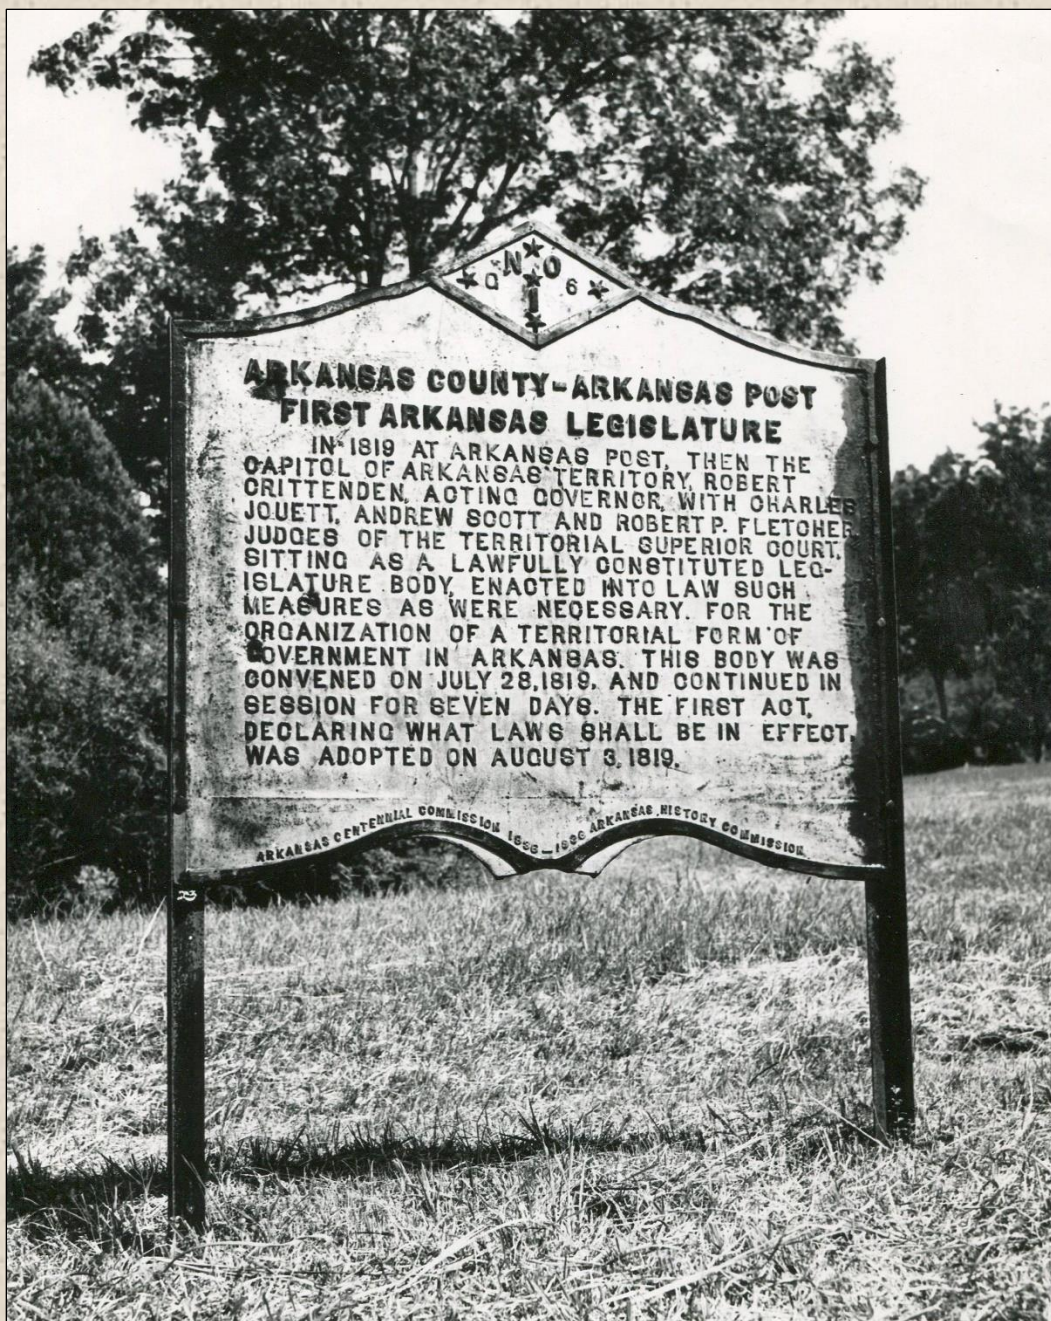 NO
Q 6
1
ARKANSAS COUNTY-ARKANSAS POST
FIRST ARKANSAS LEGISLATURE
IN 1819 AT ARKANSAS POST, THEN THE
CAPITOL OF ARKANSAS TERRITORY, ROBERT
CRITTENDEN, ACTING GOVERNOR, WITH CHARLES
JOUETT, ANDREW SCOTT AND ROBERT P. FLETCHER,
JUDGES OF THE TERRITORIAL SUPERIOR COURT,
SITTING AS A LAWFULLY CONSTITUTED LEG-
ISLATURE BODY, ENACTED INTO LAW SUCH
MEASURES AS WERE NECESSARY. FOR THE
ORGANIZATION OF A TERRITORIAL FORM OF
GOVERNMENT IN ARKANSAS. THIS BODY WAS
CONVENED ON JULY 28, 1819, AND CONTINUED IN
SESSION FOR SEVEN DAYS. THE FIRST ACT,
DECLARING WHAT LAWS SHALL BE IN EFFECT,
WAS ADOPTED ON AUGUST 3, 1819.
ARKANSAS CENTENNIAL COMMISSION 1836-1936 ARKANSAS HISTORY COMMISSION